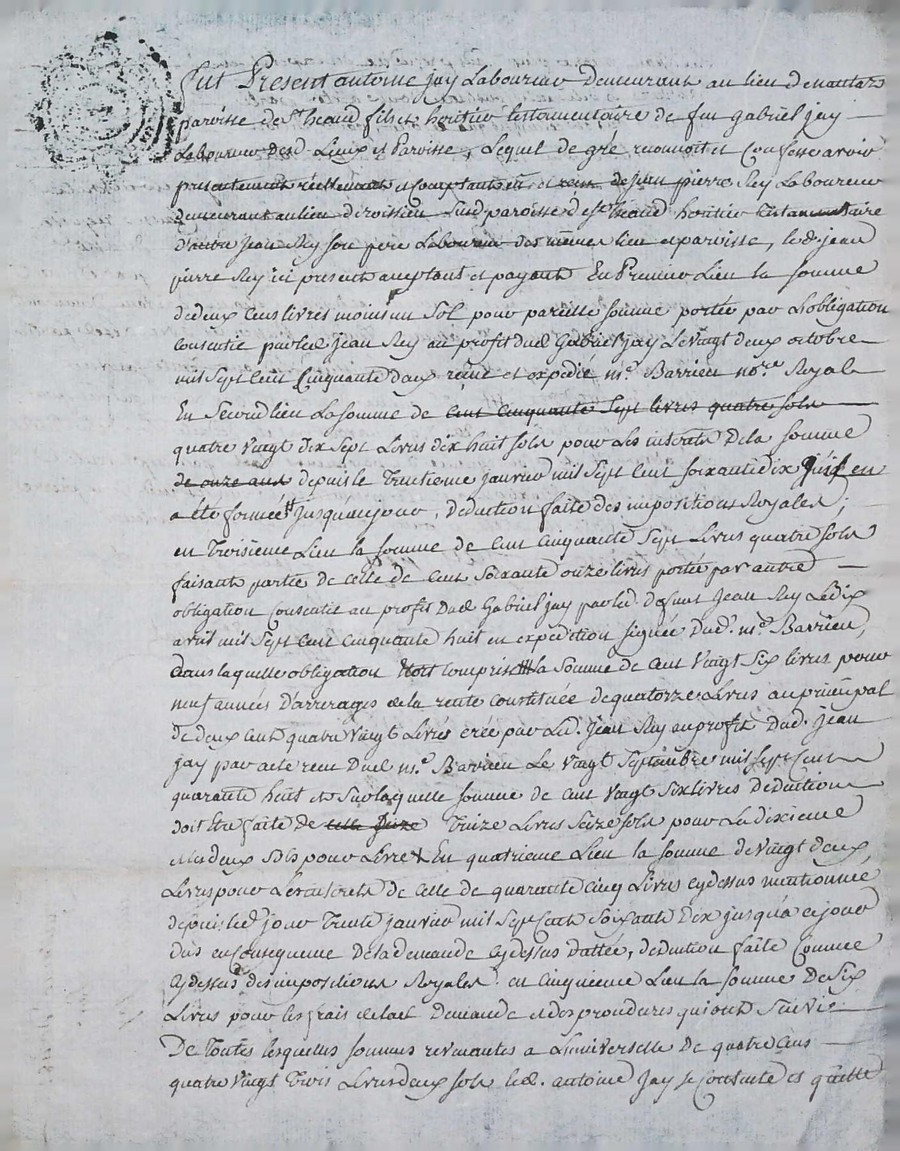 fut Present antoine jay Laboureur Demeurant au lieu de nautars
paroisse de St. heand fils et heritier testamentaire de feu gabriel jay
Laboureur desd. Lieux et Paroisse, Lequel de gré reconnoit et Confesse avoir
presentement réellement et comptant eu et receu de jean pierre Rey Laboureur
demeurant au lieu susd. paroisse de st. heand heritier testamentaire
d'autre jean Rey son pere Laboureur des mêmes lieu et paroisse, led. jean
pierre Rey ici present acceptant et payant En Premier Lieu la somme
de deux Cens livres moins un Sol pour pareille somme portée par L'obligation
consentie par led. jean Rey au profit dud. Gabriel jay Le vingt deux octobre
mil sept Cent Cinquante deux reçue et expedié me. Barrieu nore. Royal
En Second lieu La somme de cent cinquante sept livres quatre sols
quatre vingt dix sept Livres dix huit sols pour Les interets de la somme
de onze ans depuis le trentieme janvier mil sept Cent soixante dix qu'il en
a été formée jusqu'a ce jour, déduction faite des impositions Royales;
en troisieme Lieu la somme de Cent Cinquante Sept Livres quatre sols
faisant partie de celle de Cent Soixante onze livres portée par autre
obligation Consentie au profit Dud. Gabriel jay par led. defunt Jean Rey Le dix
avril mil sept cent cinquante huit en expédition signée dud. me. Barrieu,
dans laquelle obligation étoit comprise la somme de Cent Vingt Six livres pour
neuf années d'arrerages de la rente constituée de quatorze Livres au principal
de deux cent quatre vingt Livres créé par Led. jean Rey au profit Dud. jean
jay par acte recu Dud. me. Barrieu Le Vingt Septembre mil sept cent
quarante huit et sur laquelle somme de cent Vingt Six livres Déduction
doit Etre faite de celle treize Treize Livres Seize sols pour La dixieme
et les deux sols pour Livre En quatrieme Lieu la somme de Vingt deux
Livres pour Les interets de celle de quarante cinq Livres cy dessus mentionnée
depuis led. jour trente janvier mil sept Cent Soixante Dix jusqu'a ce jour
dus en Consequence De la demande cy dessus dattée, déduction faite Comme
cy dessus des impositions Royales. en cinquieme Lieu la somme De Six
Livres pour les frais de lad. Demande et des procedures qui ont Suivie
De toutes lesquelles sommes revenantes a L'universelle De quatre Cens
quatre Vingt trois Livres deux sols led. antoine Jay se Contente et quitte